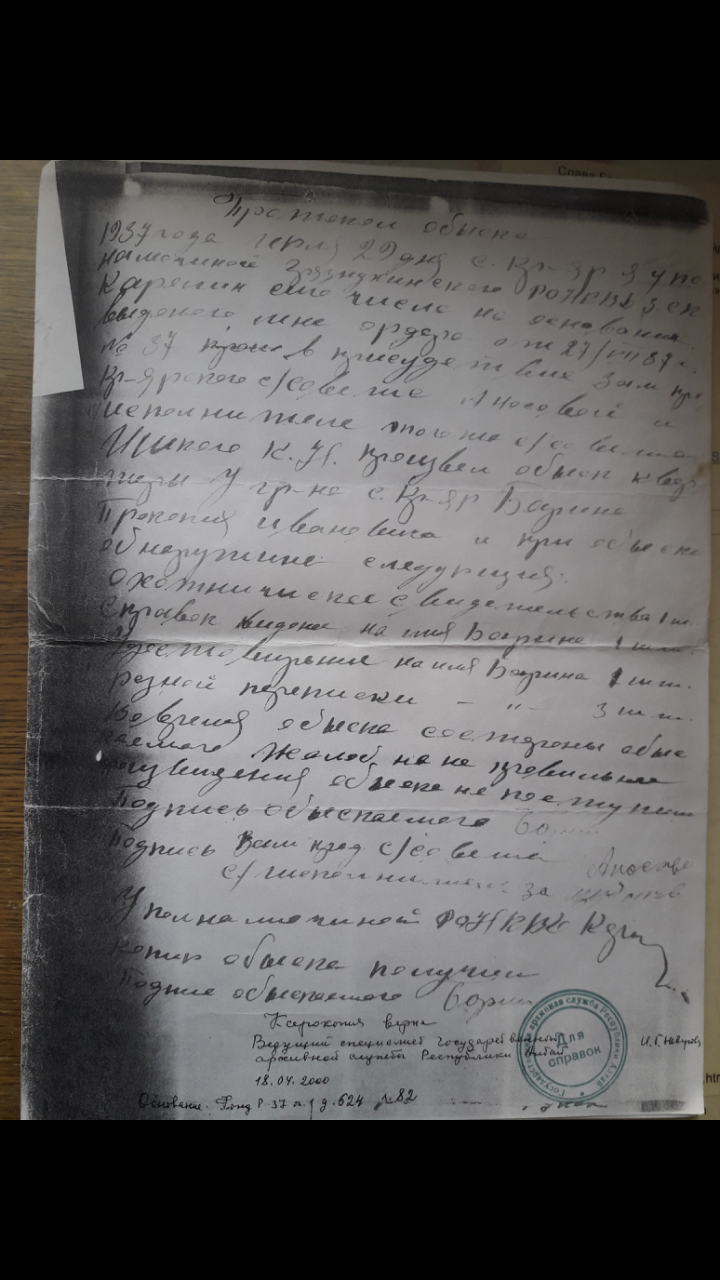 Протокол обыска
1937 года июля 29 дня с. Кр-яр я упо
намоченой РОНКВД
Карелин сего числа на основании
выденого мне ордера от 27/VII 37 г.
№ 37 в присудствие зам пре
Кр-Ярского с/совета Аносовой и
исполнителе того же с/совета
К.Н. произвел обыск квар
тиры у гр-на с. Кр-яр Борина
Прокопия Ивановича и при обыске
обнаружине следующия:
охотничьское свидетельства 1 шт.
Справок выдене на имя Борина 1 шт.
Удостовирение на имя Борина 1 шт.
разной переписки – " – 3 шт.
Вовремя обыска состороны обыс
каемого жалоб на не провильное
обыска не поступило
Подпись обыскаемого Борин
Подпись Зам пред с/совета
с/исполнителе за
Уполнамоченой РОНКВД
Копию обыска получил
Подпись обыскаемого Борин
Ксерокопия верна
Ведущий специалист государственной
архивной службы Республики Алтай
18.04.2000
Основание: Фонд Р-37 д. 624 л. 82
Государственная архивная служба Республики Алтай
Для
справок
Слава